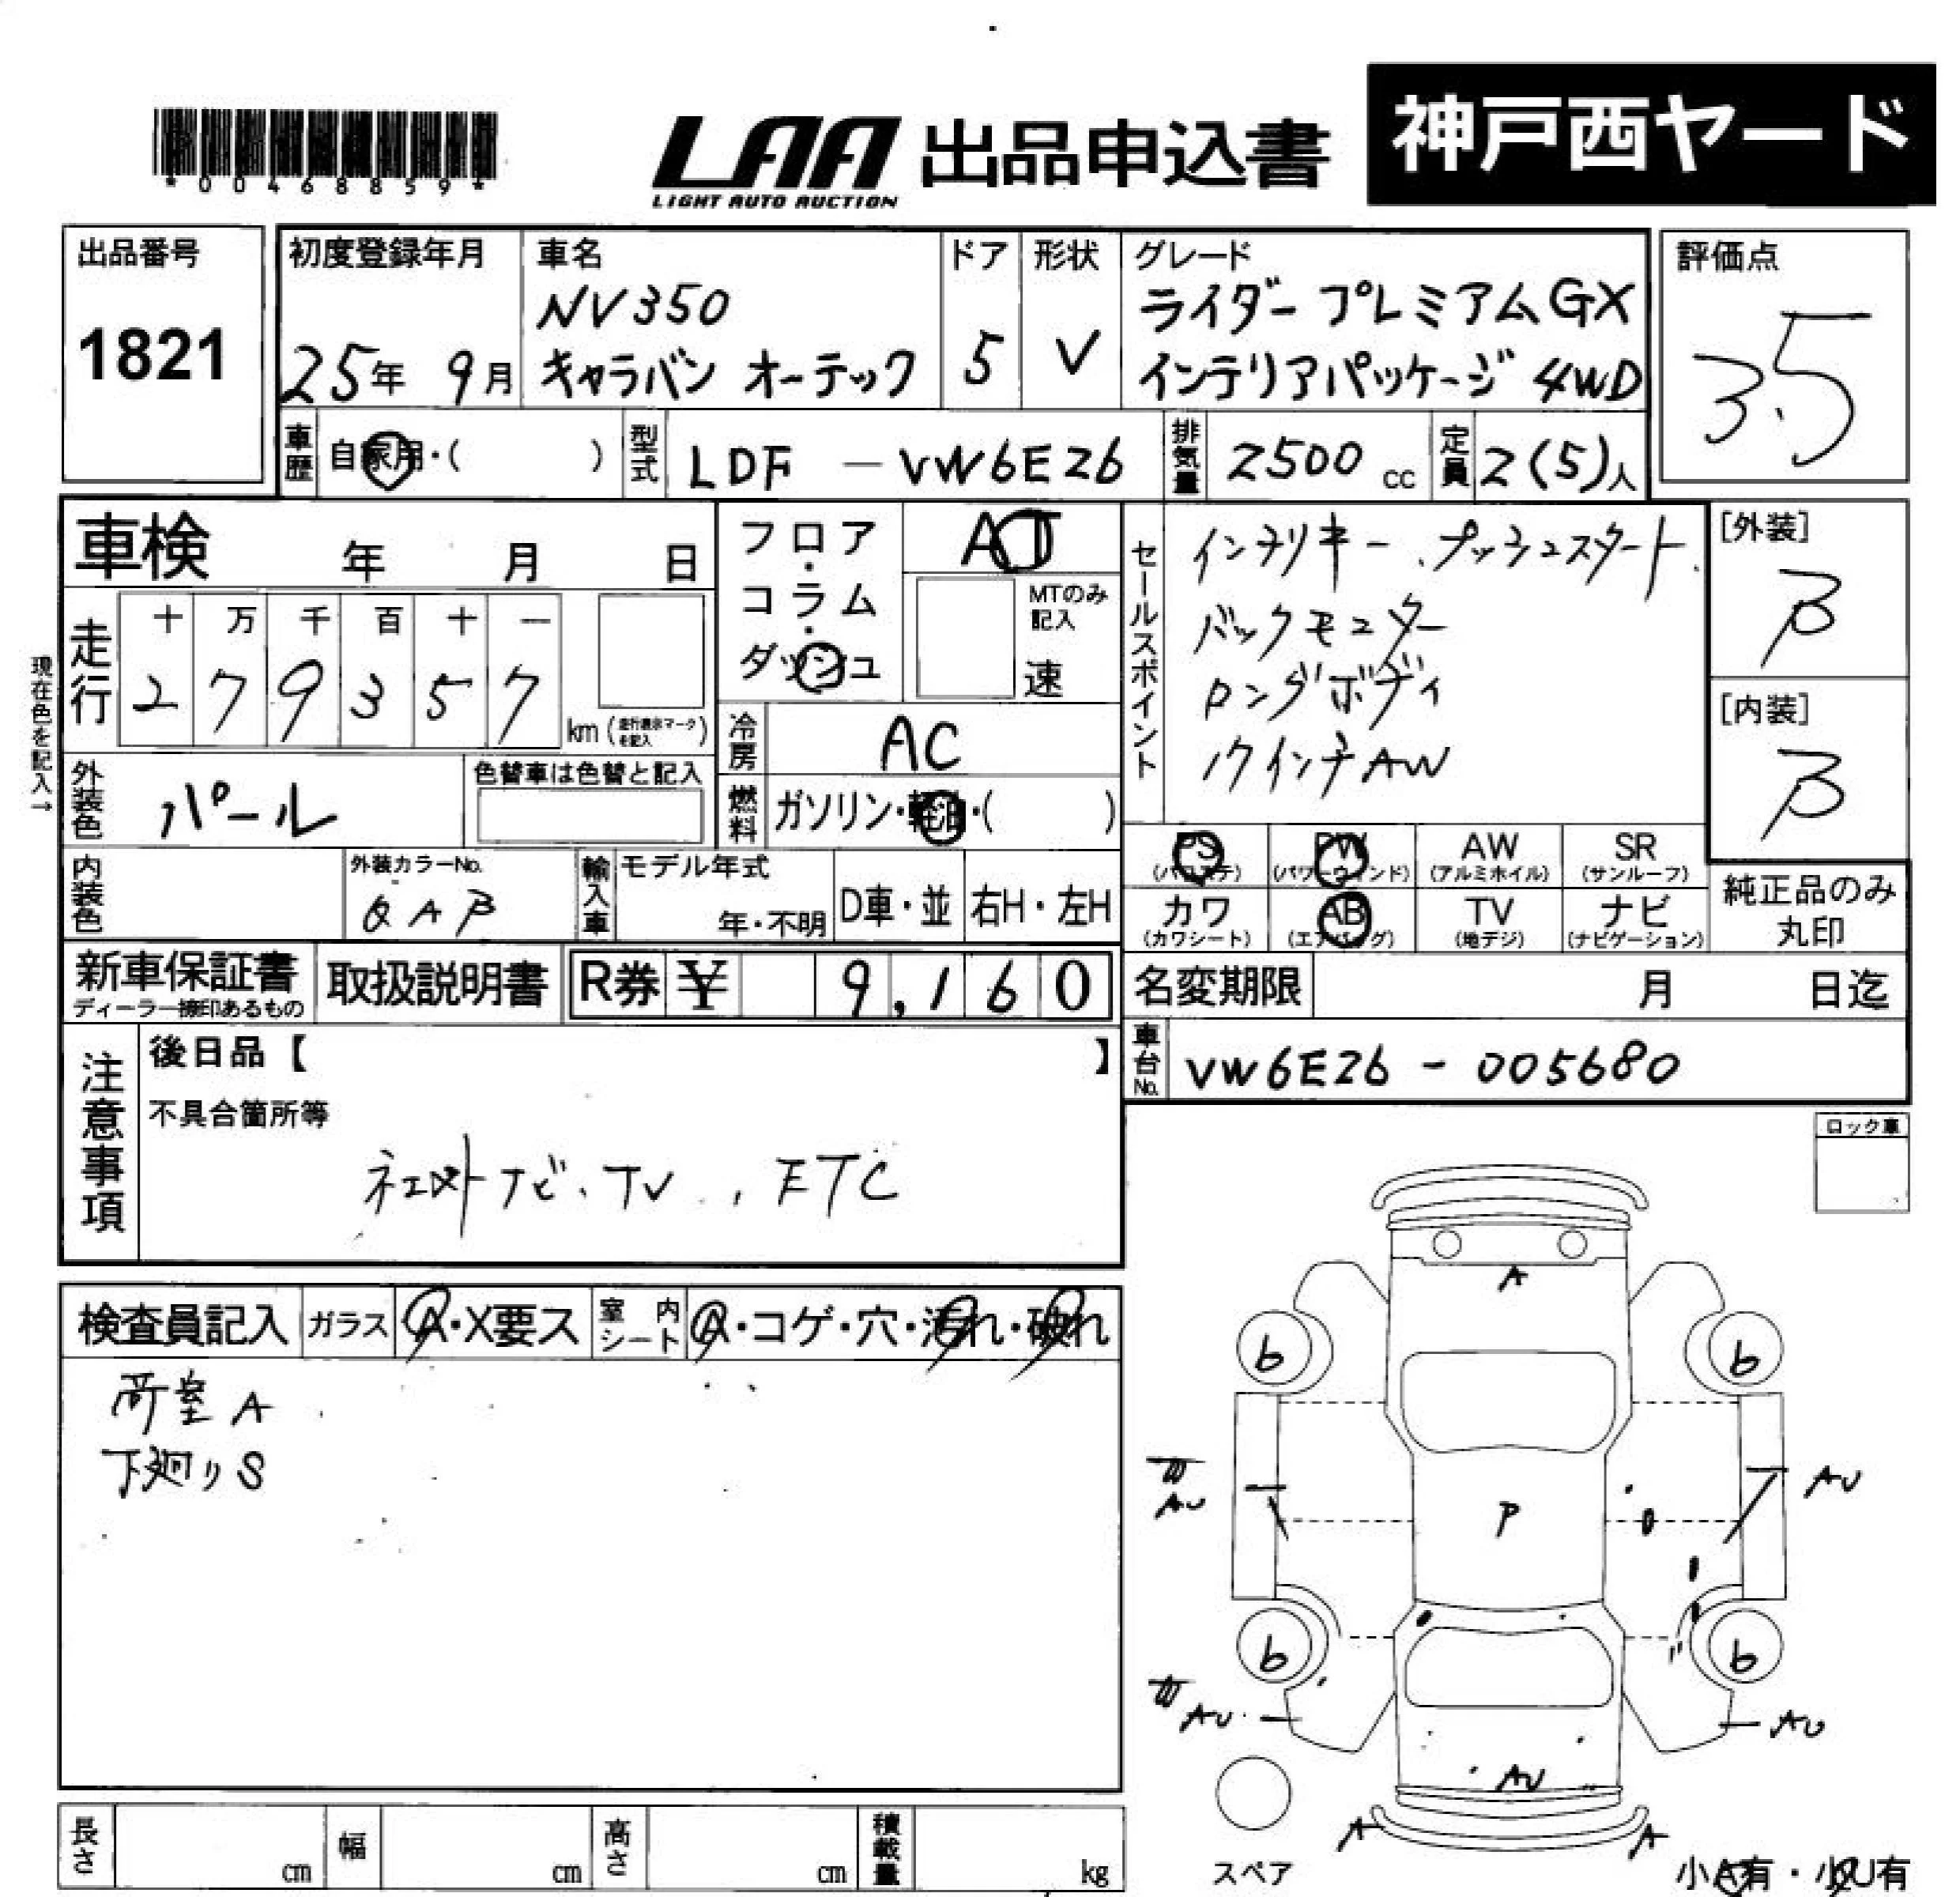 *00468859*
LAA 出品申込書 神戸西ヤード
LIGHT AUTO AUCTION
出品番号
1821
初度登録年月
25年 9月
車名
NV350
キャラバン オーテック
ドア
5
形状
V
グレード
ライダー プレミアムGX
インテリアパッケージ 4WD
評価点
3.5
車歴 自家用・( )
型式 LDF - VW6E26
排気量 2500 cc
定員 2(5)人
車検 年 月 日
フロア・コラム・ダッシュ
AT
MTのみ記入
速
セールスポイント
インテリキー、プッシュスタート、
バックモニター
ロングボディ
[外装]
B
[内装]
B
現在色を記入→
走行
十 万 千 百 十 一
2 7 9 3 5 7
km (走行表示マークを記入)
冷房 AC
外装色 パール
色替車は色替と記入
燃料 ガソリン・軽油・( )
PS (パワステ)
PW (パワーウィンド)
AW (アルミホイル)
SR (サンルーフ)
カワ (カワシート)
AB (エアバッグ)
TV (地デジ)
ナビ (ナビゲーション)
純正品のみ
丸印
内装色
外装カラーNo.
QAB
輸入車
モデル年式
年・不明
D車・並
右H・左H
新車保証書
ディーラー捺印あるもの
取扱説明書
R券 ¥ 9,160
名変期限 月 日迄
車台No. VW6E26 - 005680
注意事項
後日品【 】
不具合箇所等
社外ナビ、TV、ETC
ロック車
検査員記入
ガラス A・X要ス
室内シート A・コゲ・穴・汚れ・破れ
荷室A
下廻りS
A
b b
AU
AU
P
b b
AU
AU
AU
A A
スペア
小A有・小U有
長さ cm
幅 cm
高さ cm
積載量 kg